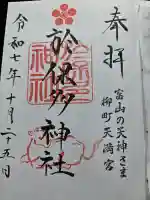 奉拝
富山の天神さま
柳町天満宮
於保多神社
令和七年十月二十五日